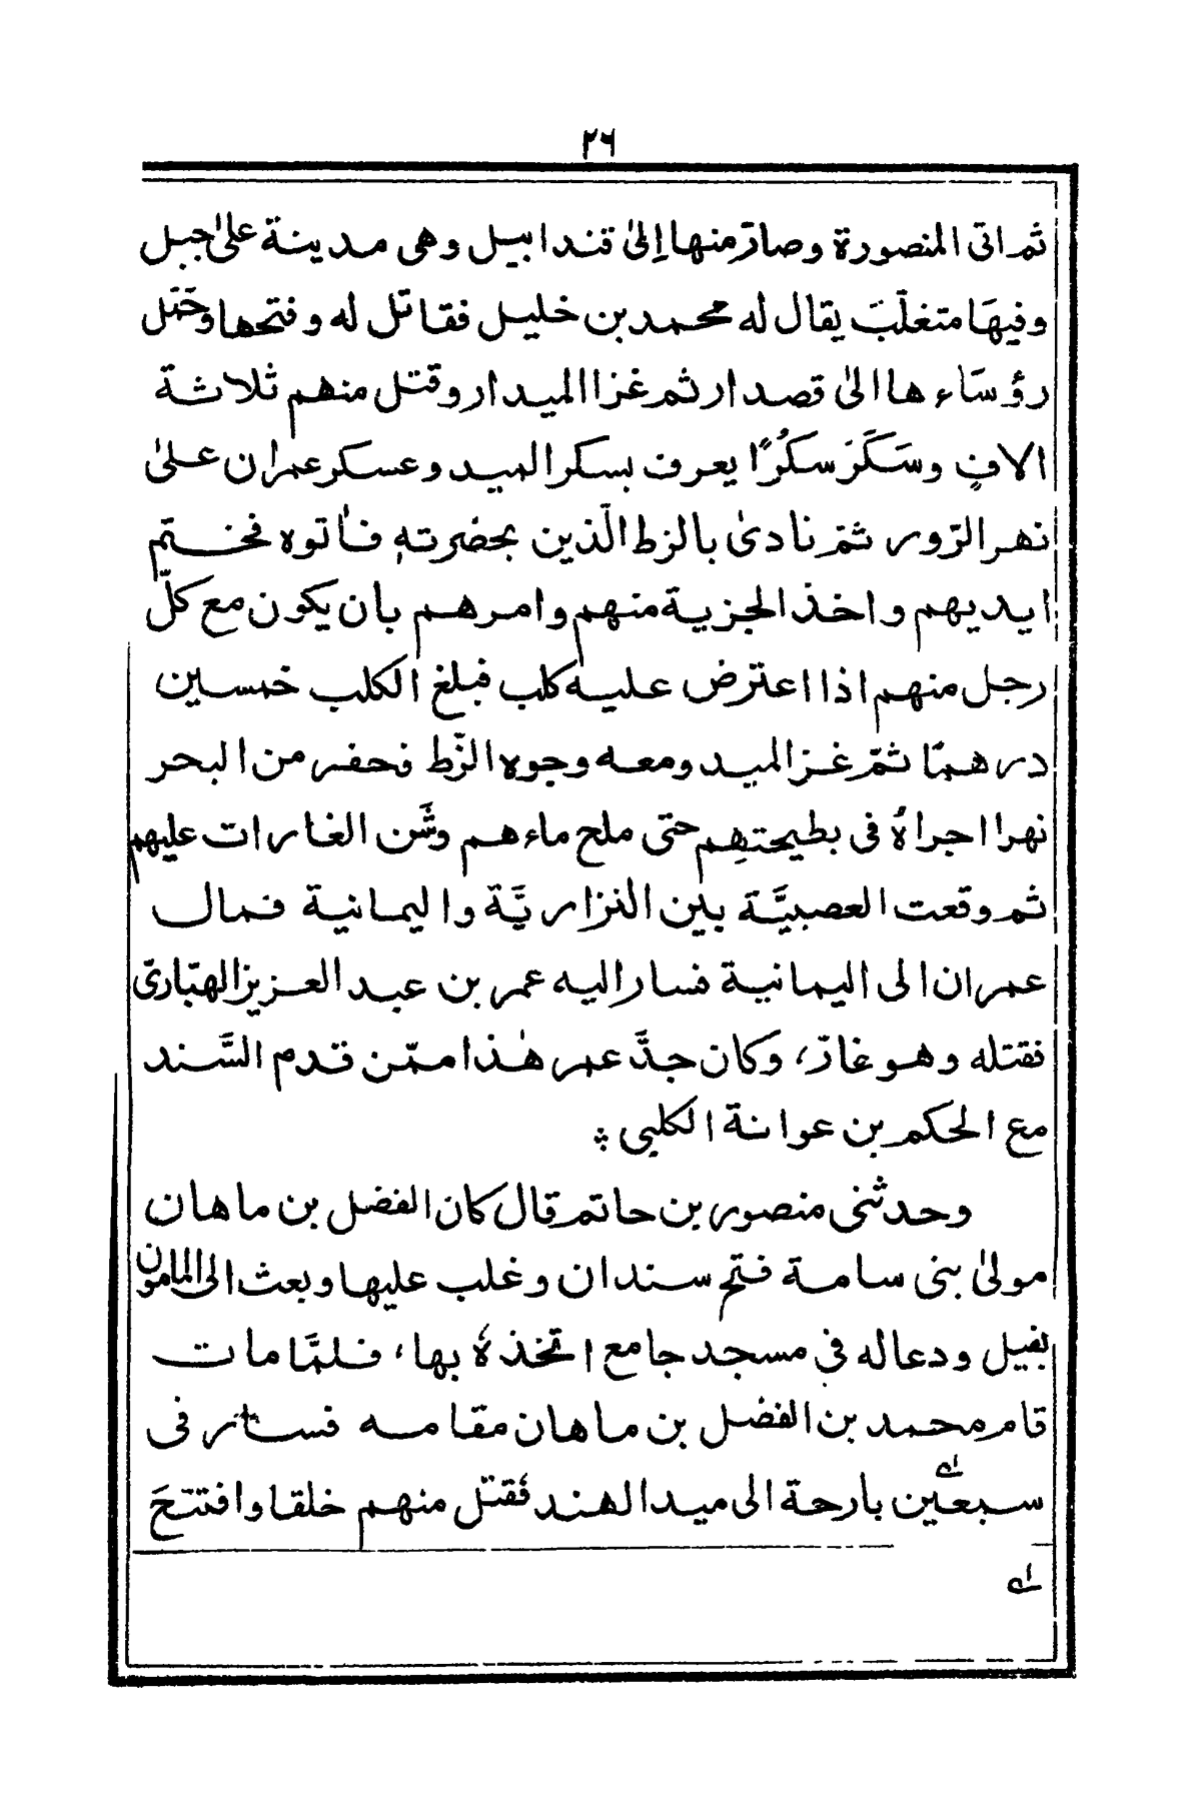 ٢٦
ثم اتى المنصورة وصار منها إلىٰ قندابيل وهى مدينة علىٰ جبل
وفيهَا متغلّبَ يقال له محمد بن خليل فقاتل له وفتحها وحَمَل
رؤسَاءها الىٰ قصدار ثم غزا الميدار وقتل منهم ثلاثة
الافٍ وسَكَرَ سكرًا يعرف بسكر الميد وعسكر عمران علىٰ
نهر الرّور ثمّ نادىٰ بالزط الّذين بحضرتهٖ فأتوه فختم
ايديهم واخذ الجزية منهم وامرهم بان يكون مع كلّ
رجل منهم اذا اعترض عليه كلب فبلغ الكلب خمسين
درهمًا ثمّ غزا الميد ومعه وجوه الزّط فحفر من البحر
نهرا اجراهُ فى بطيحتهِم حتى ملح ماءهم وشَّن الغارات عليهم
ثم وقعت العصبيَّة بين النزاريَّة واليمانية فمال
عمران الى اليمانية فسار اليه عمر بن عبد العزيز الهبّارىّ
فقتله وهو غارّ، وكان جدَّ عمر هٰذا ممّن قدم السَّند
مع الحكم بن عوانة الكلبى ؛
وحدثنى منصور بن حاتم قال كان الفضل بن ماهان
مولىٰ بنى سامة فتح سندان وغلب عليها وبعث الى المامون
بفيل ودعا له فى مسجد جامع اتخذهُ بها، فلمَّا مات
قام محمد بن الفضل بن ماهان مقامه فسار فى
سبعين بارحة الى ميد الهند فقتل منهم خلقا وافتتحَ